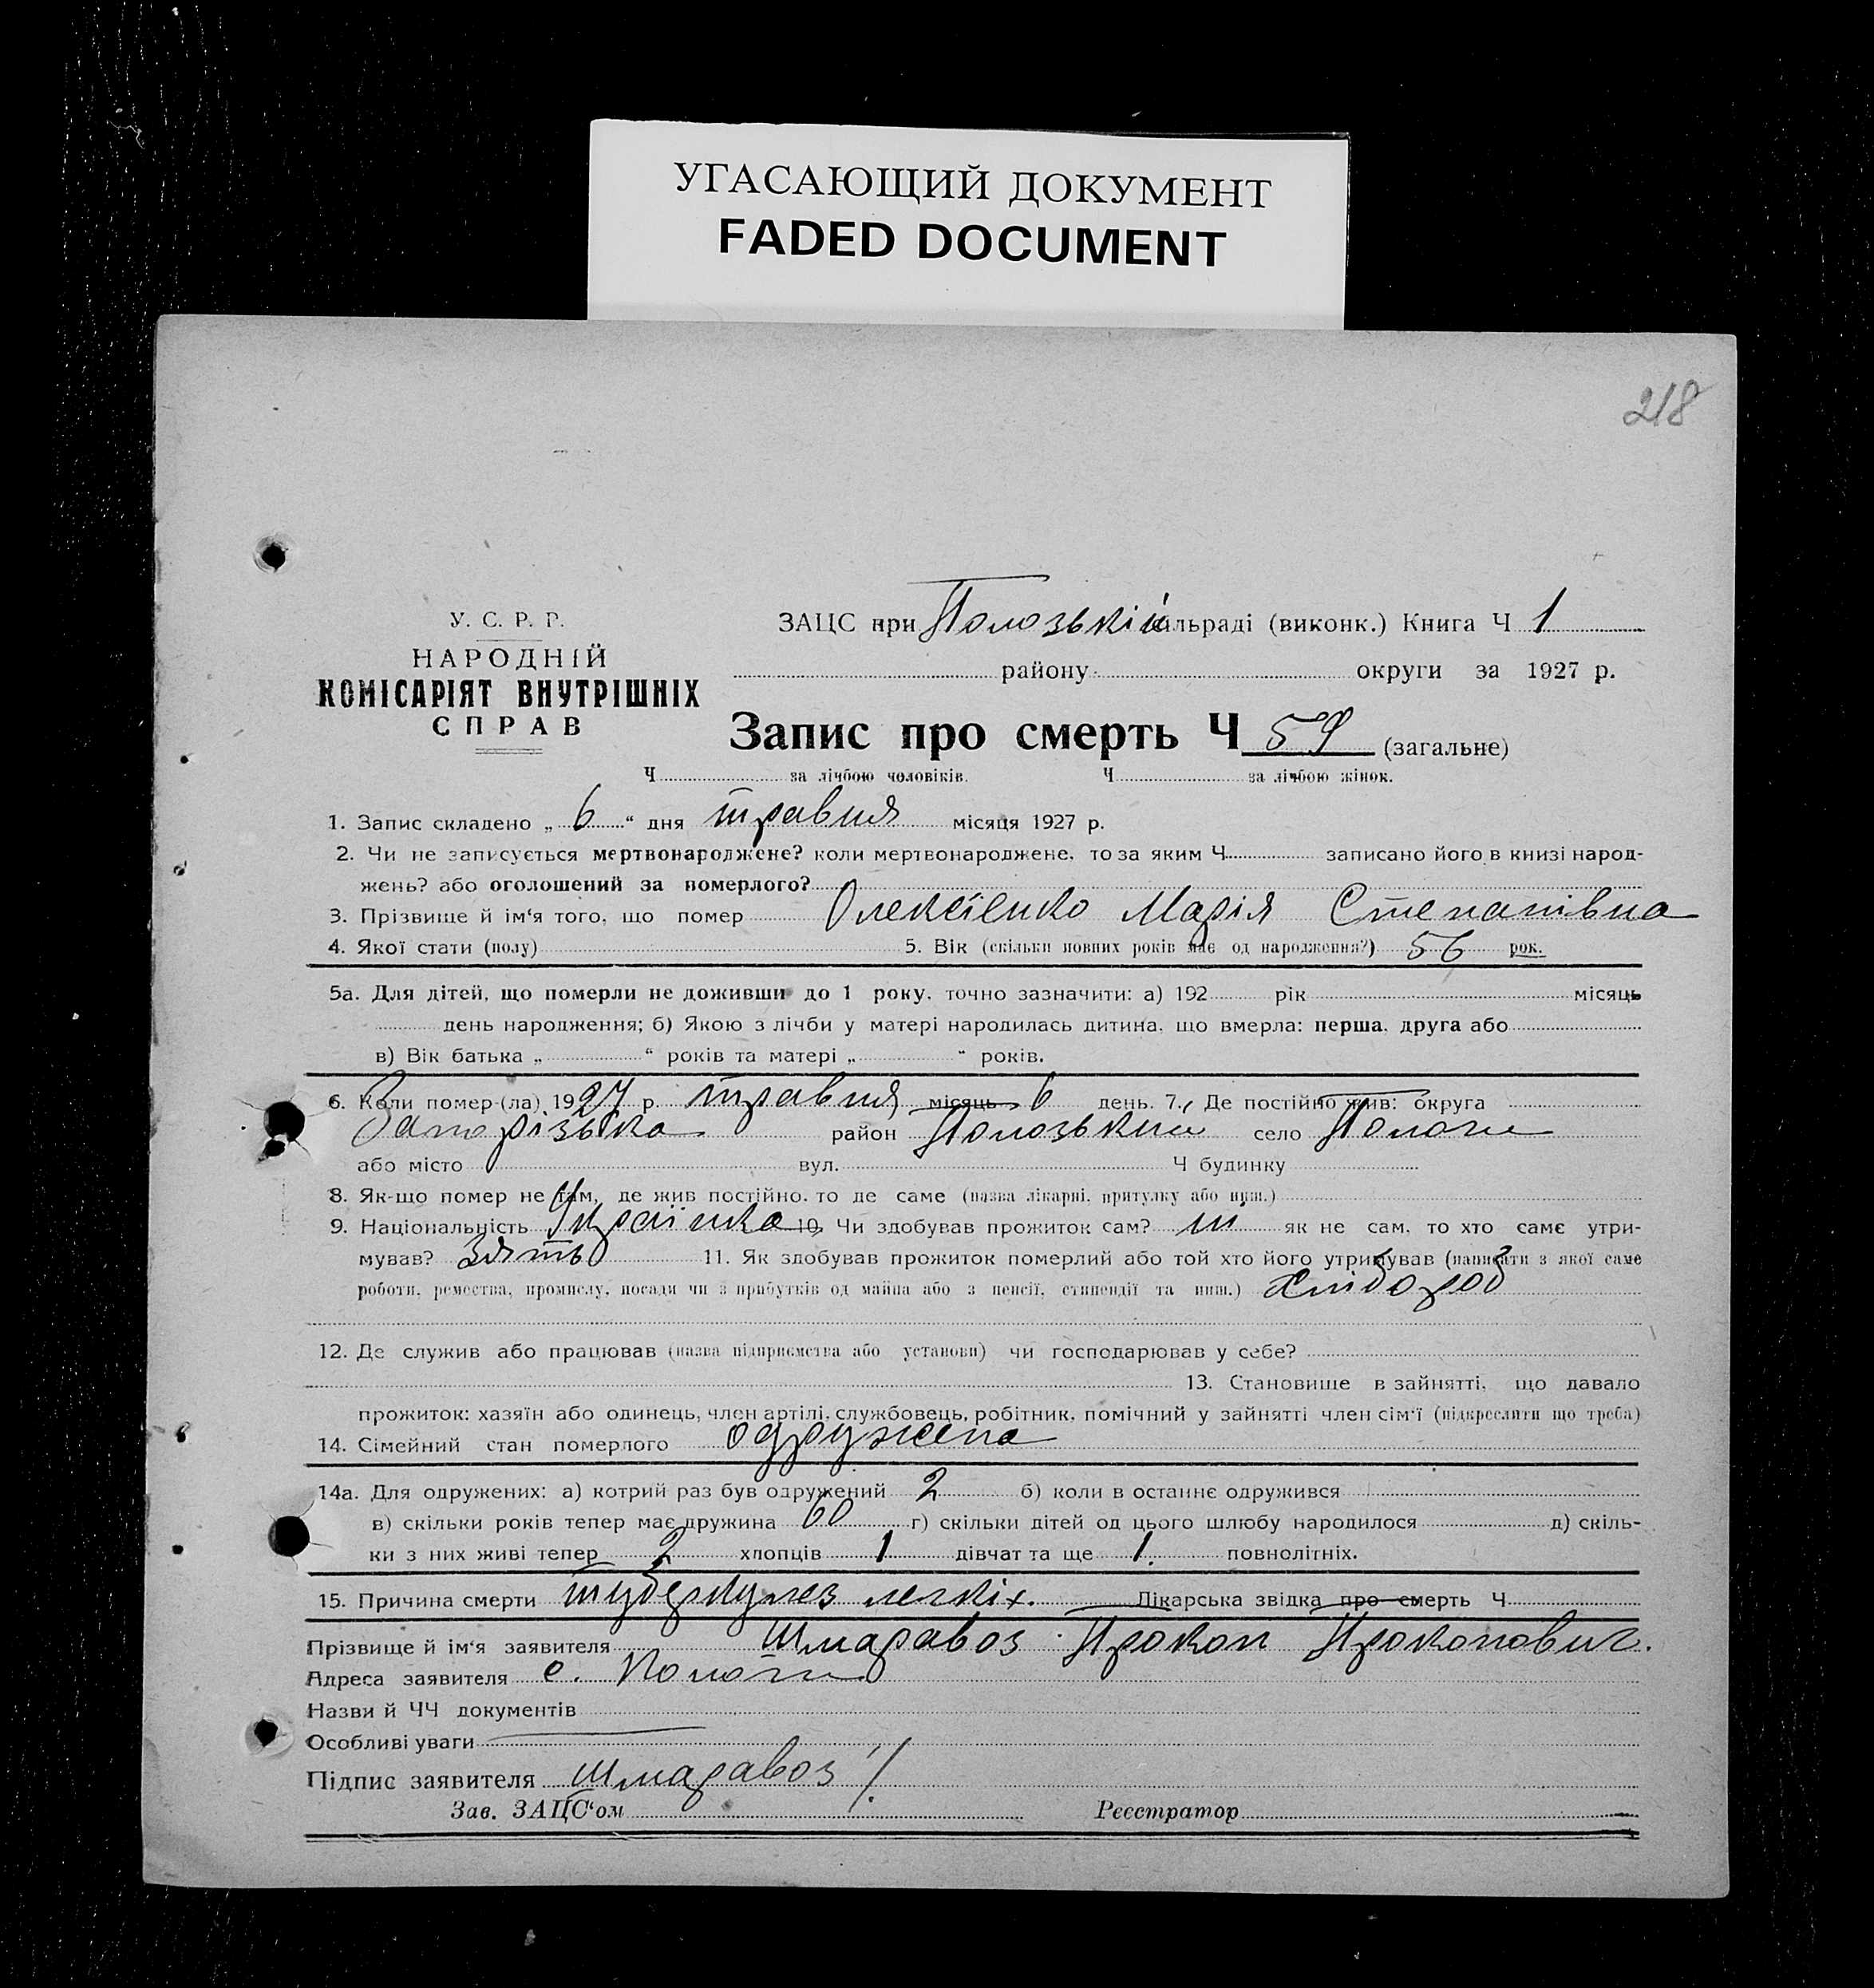 УГАСАЮЩИЙ ДОКУМЕНТ
FADED DOCUMENT
218
У. С. Р. Р.
НАРОДНІЙ
КОМІСАРІЯТ ВНУТРІШНІХ
СПРАВ
ЗАЦС при Пологзькій сільраді (виконк.) Книга Ч 1
району округи за 1927 р.
Запис про смерть Ч 59 (загальне)
Ч за лічбою чоловіків. Ч за лічбою жінок.
1. Запис складено „ 6 “ дня травня місяця 1927 р.
2. Чи не записується мертвонароджене? коли мертвонароджене, то за яким Ч записано його в книзі народ-
жень? або оголошений за померлого?
3. Прізвище й ім‘я того, що помер Олексієнко Марія Степанівна
4. Якої стати (полу) 5. Вік (скільки повних років має од народження?) 56 рок.
5а. Для дітей, що померли не доживши до 1 року, точно зазначити: а) 192 рік місяць
день народження; б) Якою з лічби у матері народилась дитина, що вмерла: перша, друга або
в) Вік батька „ “ років та матері „ “ років.
6. Коли помер-(ла) 1927 р. травня місяць 6 день. 7. Де постійно жив: округа
Запорізька район Полозьким село Пологи
або місто вул. Ч будинку
8. Як-що помер не там, де жив постійно, то де саме (назва лікарні, притулку або инш.)
9. Національність Українка 10. Чи здобував прожиток сам? ні як не сам, то хто саме утри-
мував? зять 11. Як здобував прожиток померлий або той хто його утримував (написати з якої саме
роботи, ремества, промислу, посади чи з прибутків од майна або з пенсії, стипендії та инш.) хлібороб
12. Де служив або працював (назва підприємства або установи) чи господарював у себе?
13. Становище в зайнятті, що давало
прожиток: хазяїн або одинець, член артілі, службовець, робітник, помічний у зайнятті член сім‘ї (підкреслити що треба)
14. Сімейний стан померлого одружена
14а. Для одружених: а) котрий раз був одружений 2 б) коли в останнє одружився
в) скільки років тепер має дружина 60 г) скільки дітей од цього шлюбу народилося д) скіль-
ки з них живі тепер 2 хлопців 1 дівчат та ще 1. повнолітніх.
15. Причина смерти туберкулез легкіх. Лікарська звідка про смерть Ч
Прізвище й ім‘я заявителя Шмаравоз Прокоп Прокопович.
Адреса заявителя с. Пологи
Назви й ЧЧ документів
Особливі уваги
Підпис заявителя Шмаравоз
Зав. ЗАЦС‘ом Реєстратор